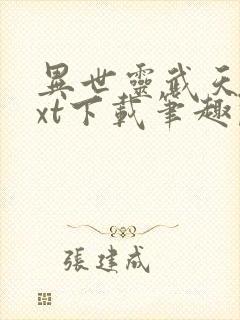 異世靈武天
xt下載筆趣
張建成